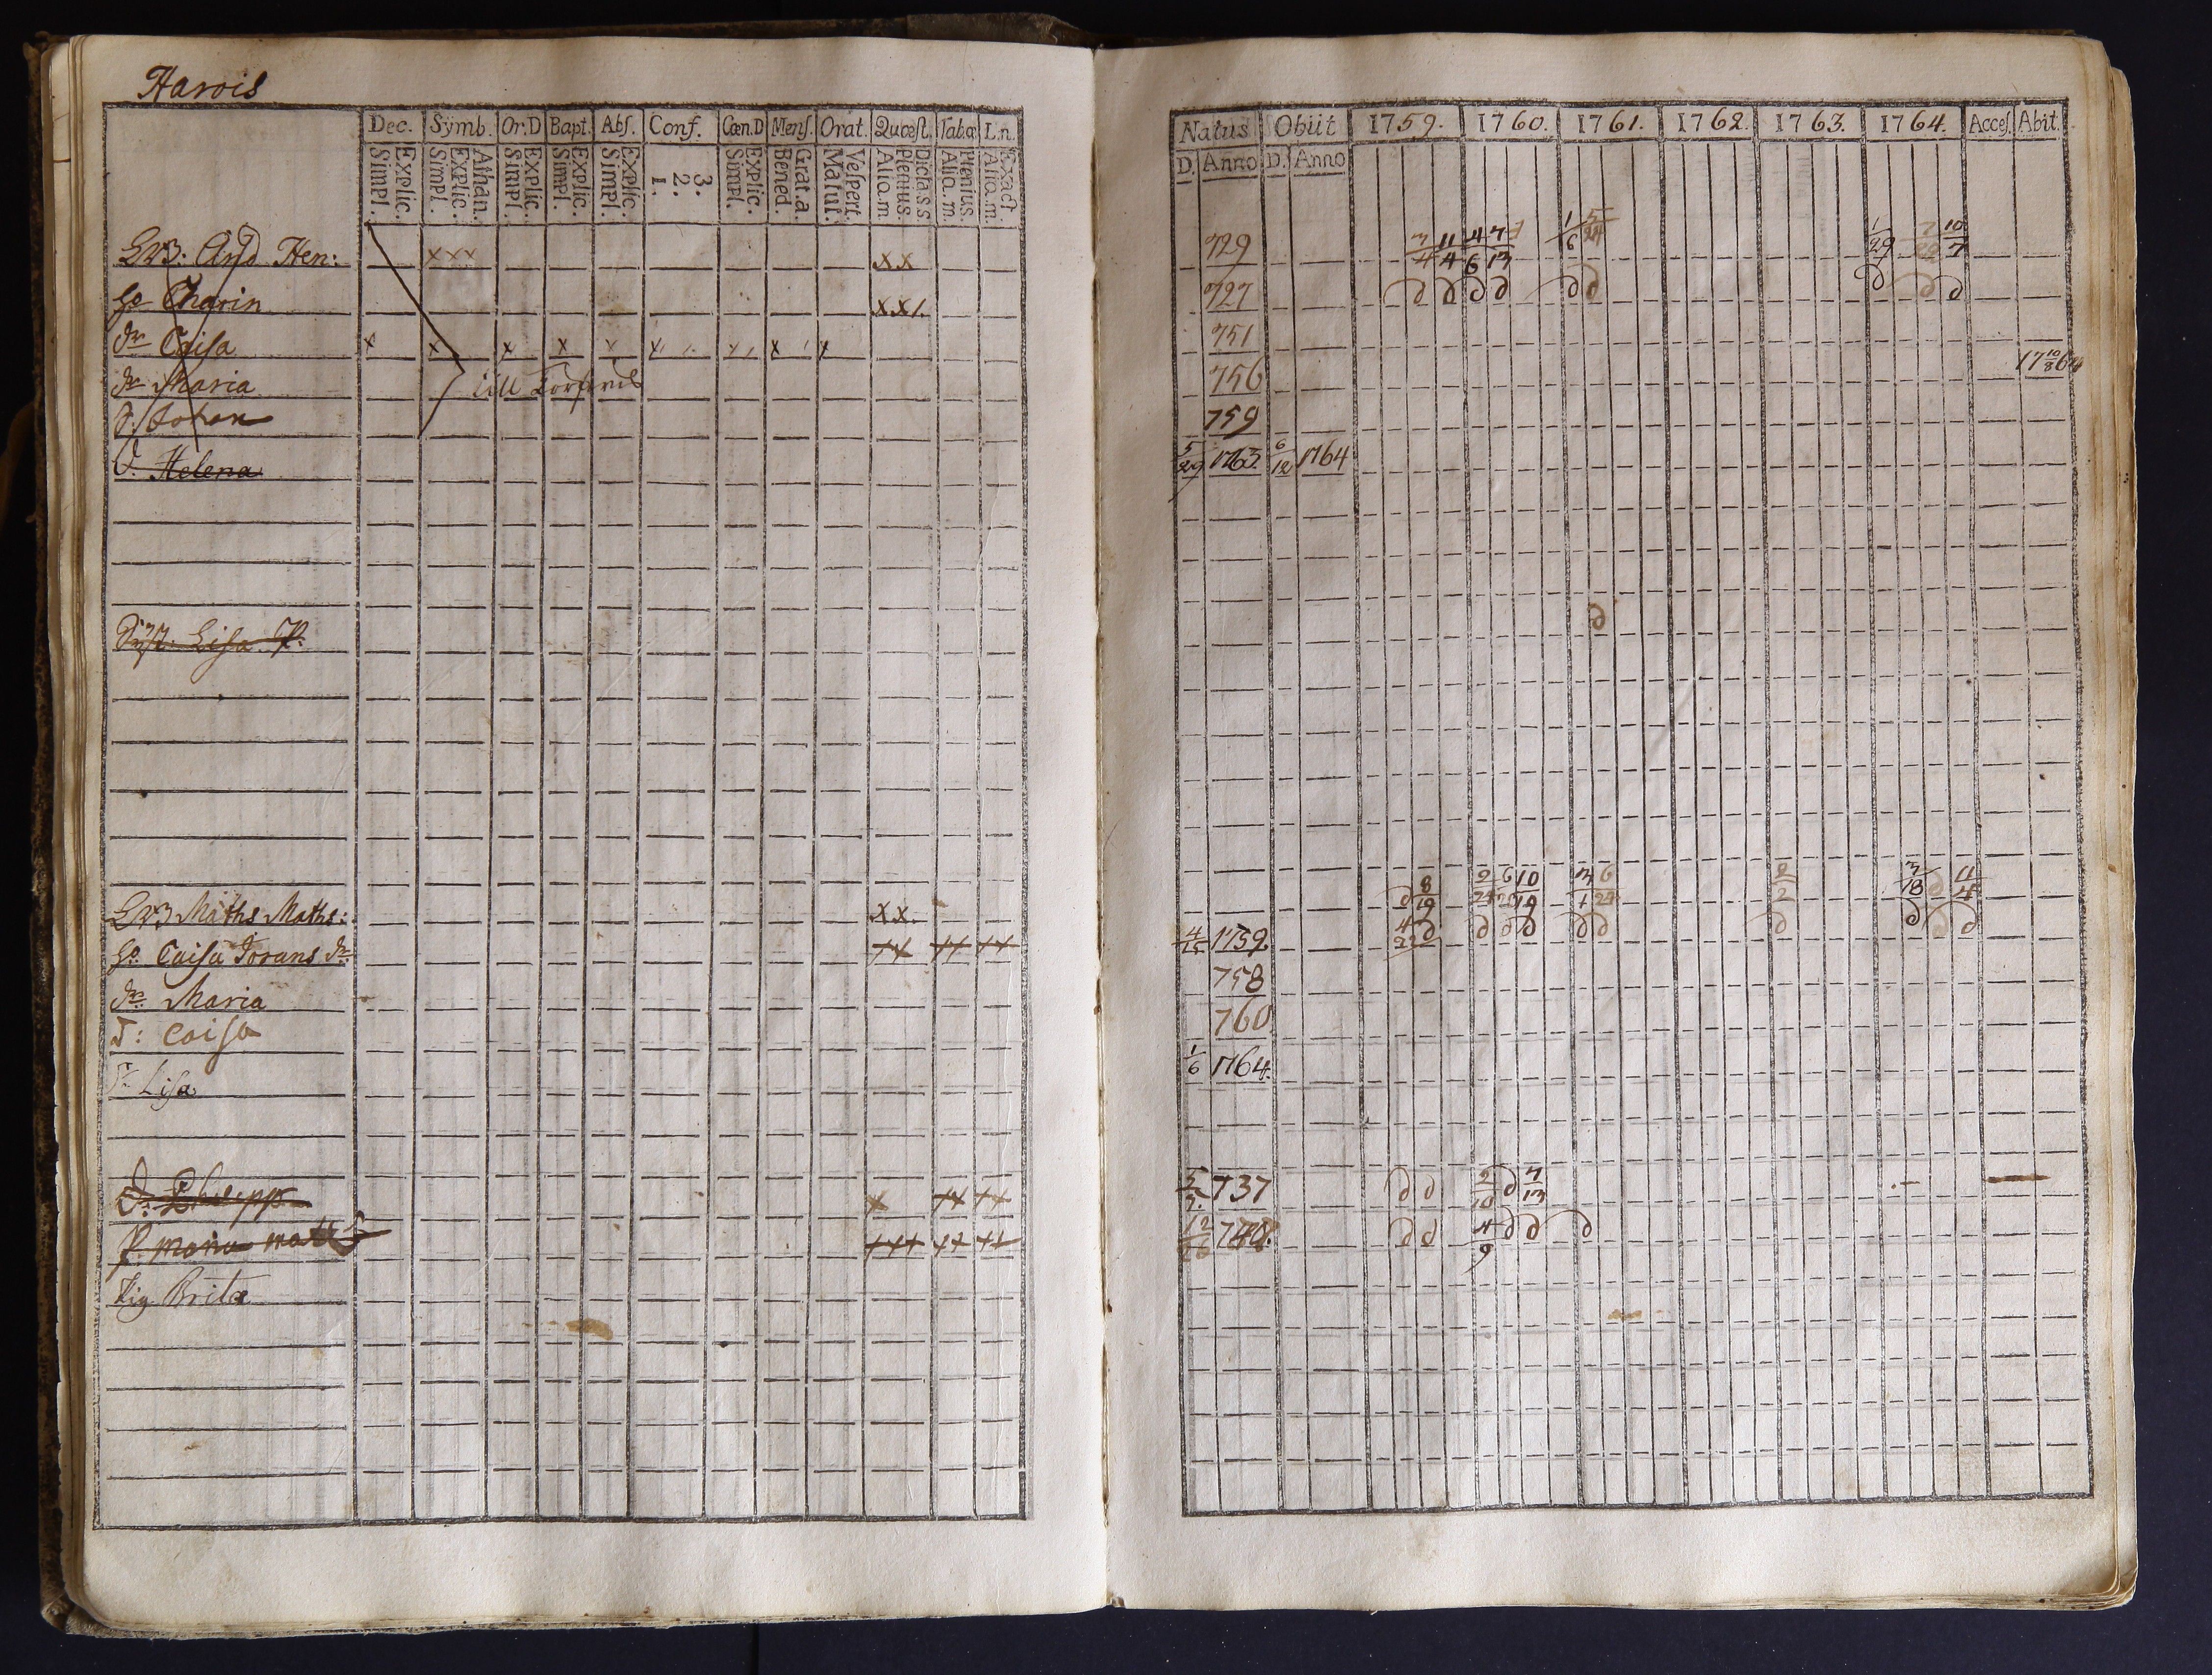 Harois
Dec. Symb. Or.D Bapt. Abſ. Conf. Cœn.D Menſ. Orat. Quæſt. Tab.œ L.n.
Explic. Simpl. Athan. Explic. Simpl. Explic. Simpl. Explic. Simpl. Explic. Simpl. 3. 2. 1. Explic. Simpl. Grat.a. Bened. Veſpert. Matut. Dicta.s.s. Plenius. Aliq.m. Plenius. Aliq.m. Exact Aliq.m.
And Hen: xxx xx
H° Charin xx
Dr Caisa x x x x x x x x
Dr Maria till
S. Johan
D. Helena
Lisa
Maths Maths: xx
H° Caisa Dr xx xx xx
Dr Maria
D: Caisa
Dr Lisa
x xx xx
xxx xx xx
Pig Brita
Natus Obiit 1759. 1760. 1761. 1762. 1763. 1764. Acceſ. Abit.
D. Anno D. Anno
729 7/4 11/4 4/6 7/13 1/6 5/24 1/29 10/7
727
751
756 17 10/8 64
759
5/29 1763. 6/12 1764
8/19 2/24 6/20 10/19 3/1 6/24 2/2 3/18 11/4
4/15 1759. 4/22
758
760
1/6 1764.
5/7. 737 2/10 7/13
12/26 4/9